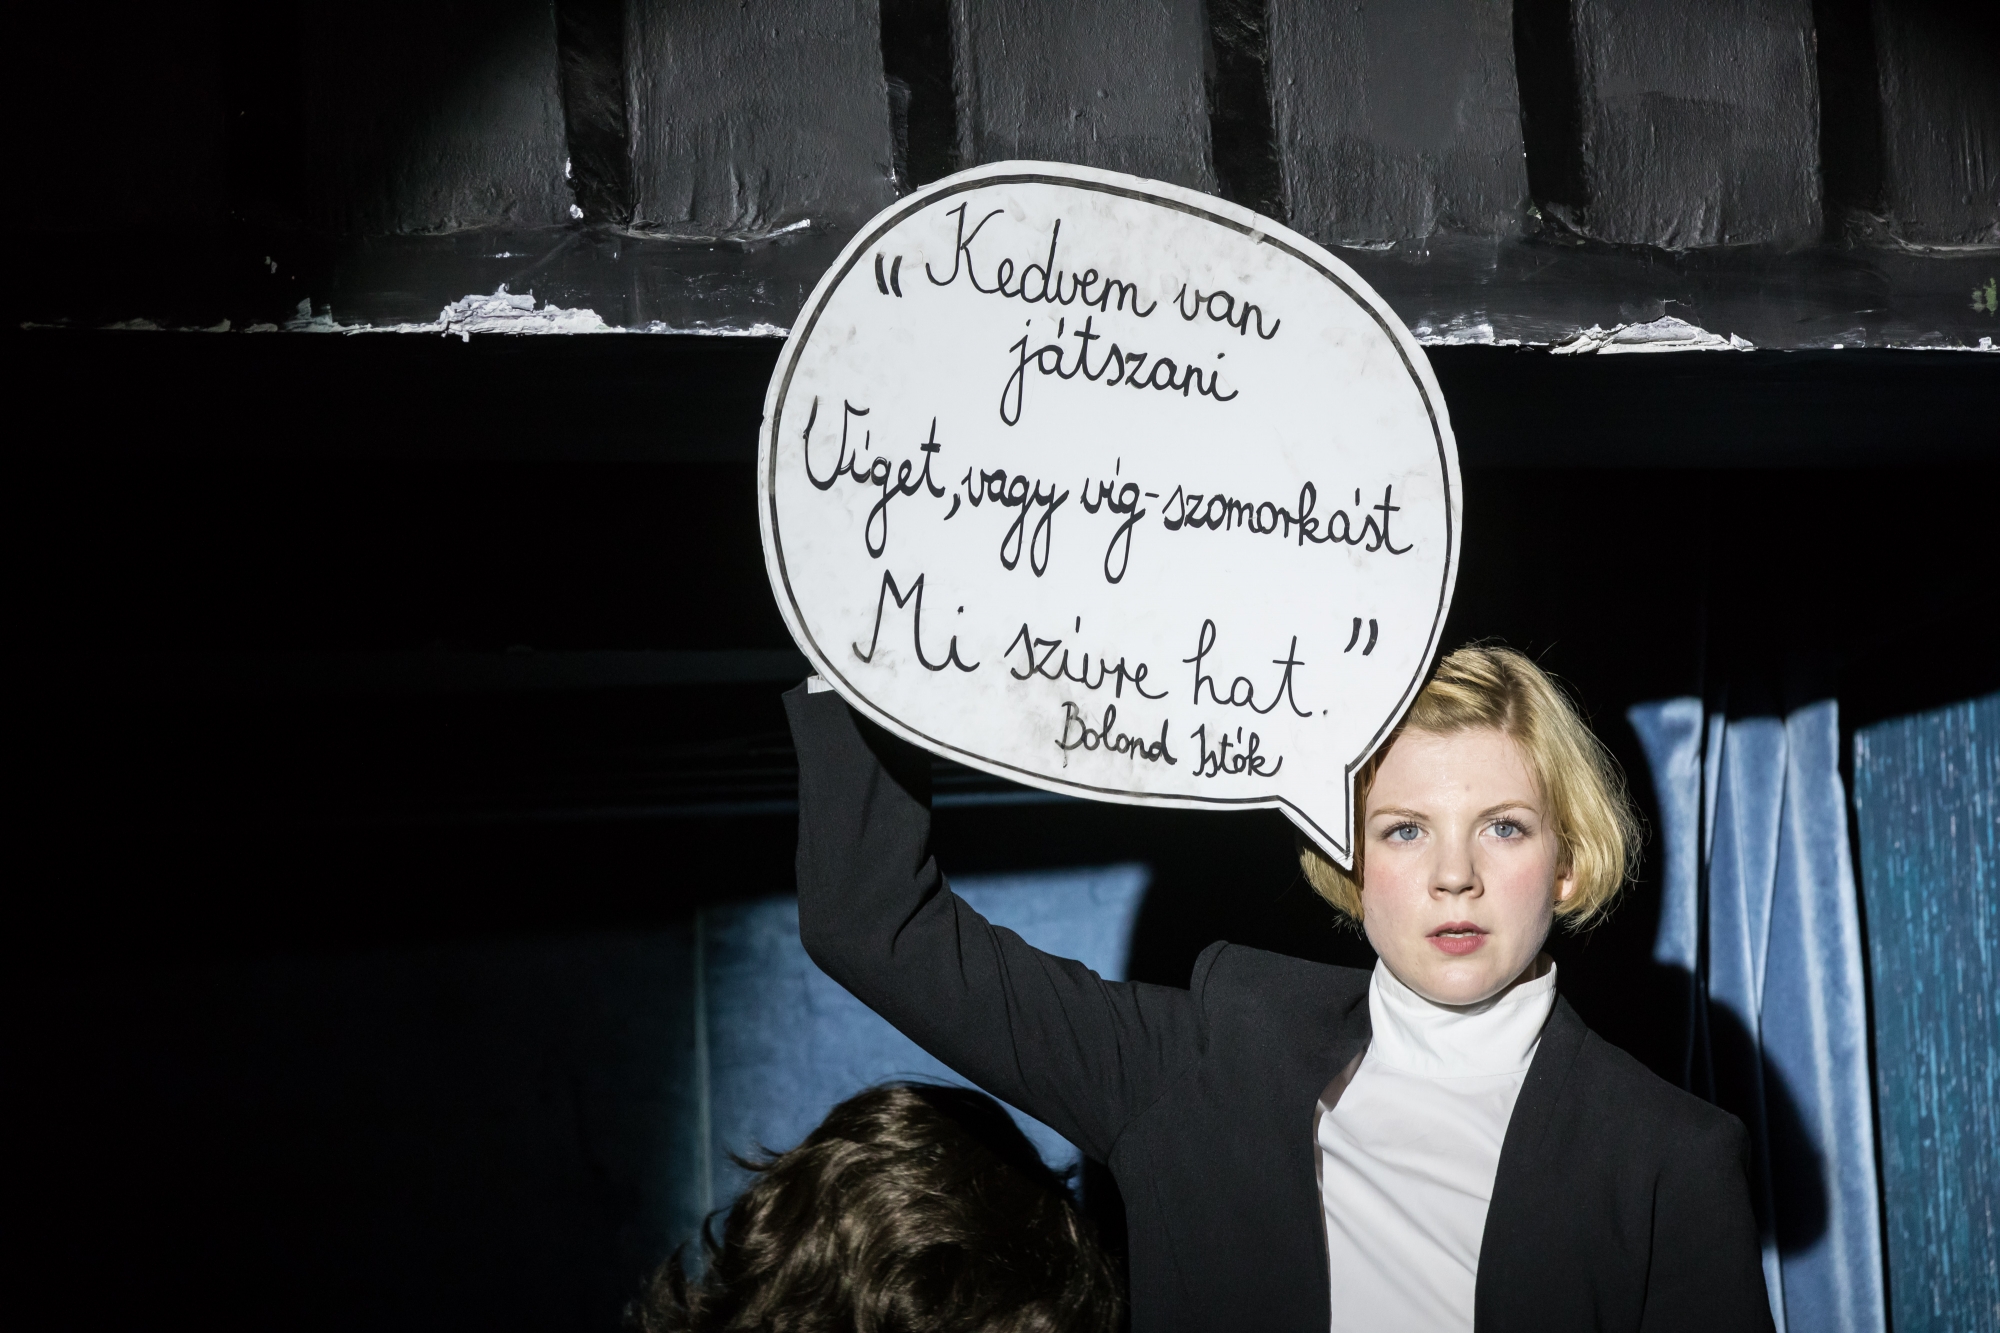 „Kedvem van
játszani
Víget, vagy víg-szomorkást
Mi szívre hat.”
Bolond Istók